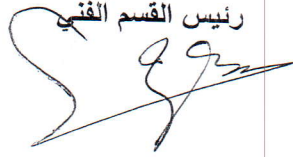 رئيس القسم الفني